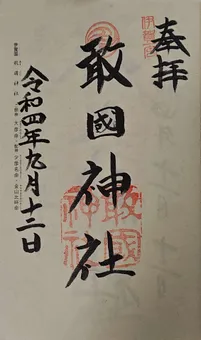 奉拝
伊賀一宮
敢國神社
敢國神社
令和四年九月十二日